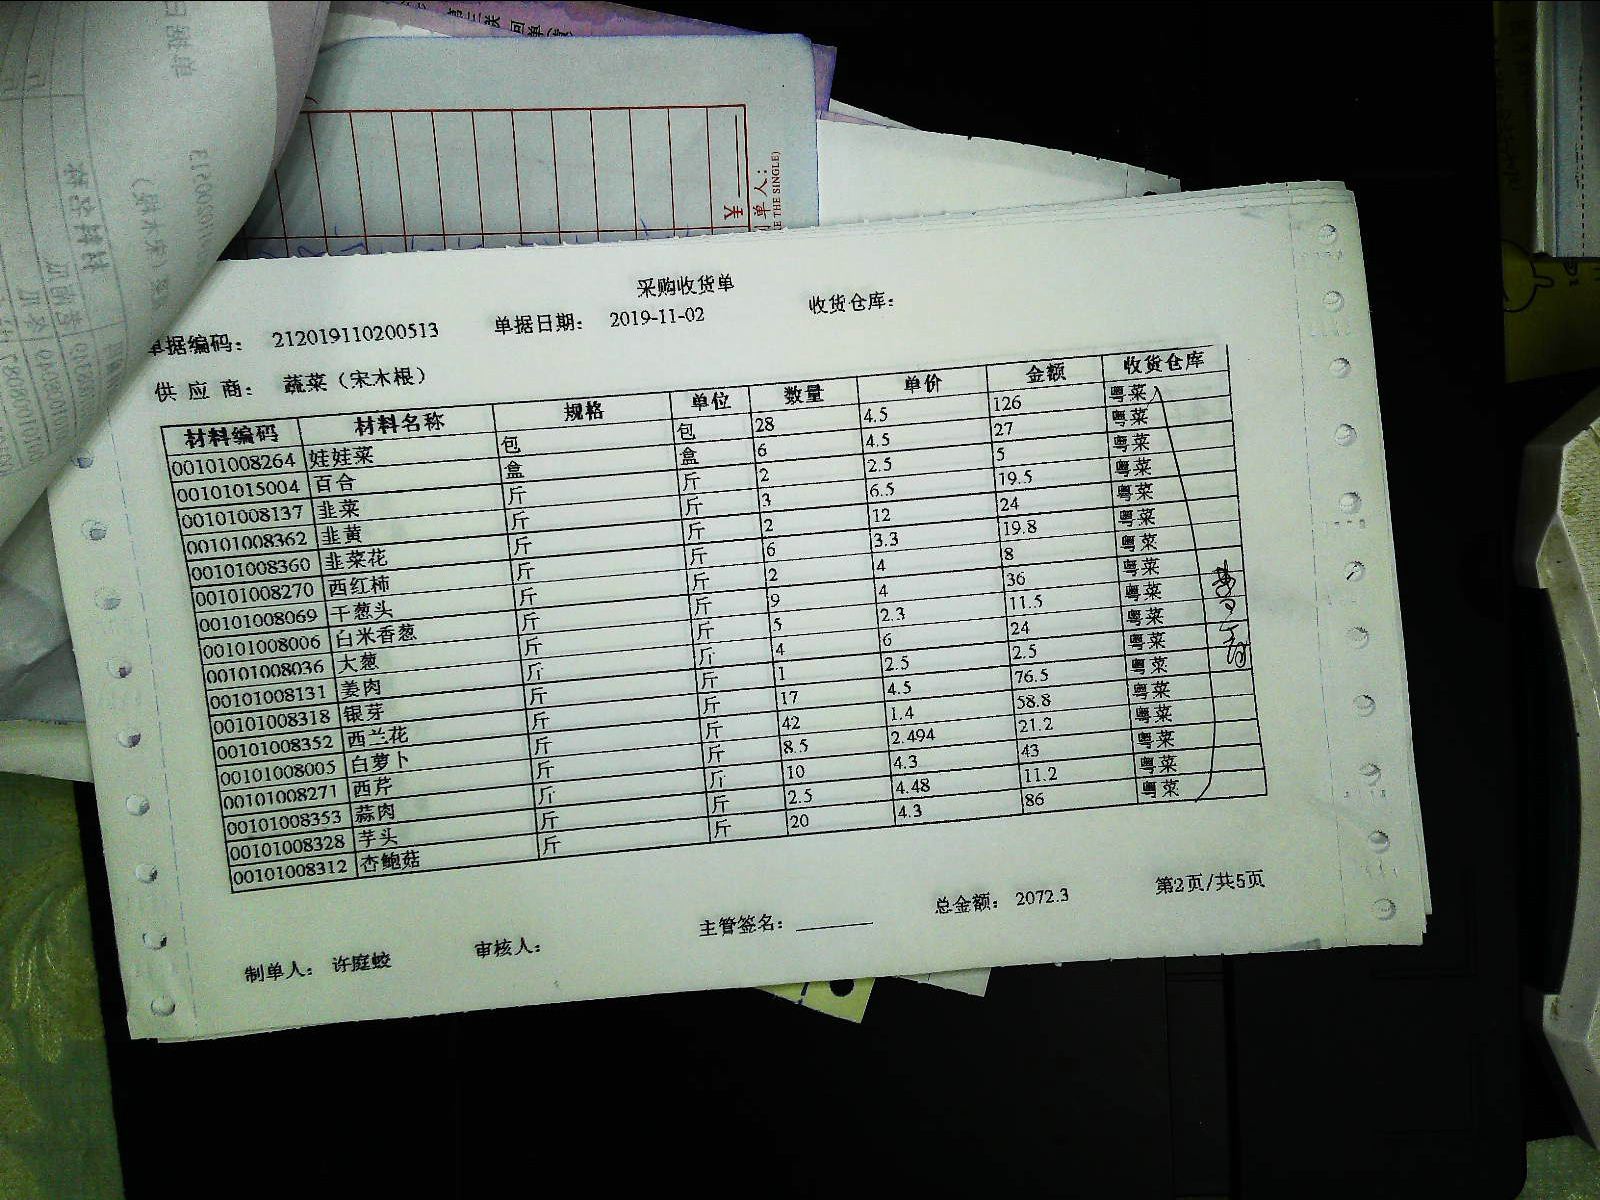 第三联 回单
¥
单人:
E THE SINGLE)
采购收货单
单据编码: 212019110200513 单据日期: 2019-11-02 收货仓库:
供应商: 蔬菜(宋木根)
材料编码 材料名称 规格 单位 数量 单价 金额 收货仓库
00101008264 娃娃菜 包 包 28 4.5 126 粤菜
00101015004 百合 盒 盒 6 4.5 27 粤菜
00101008137 韭菜 斤 斤 2 2.5 5 粤菜
00101008362 韭黄 斤 斤 3 6.5 19.5 粤菜
00101008360 韭菜花 斤 斤 2 12 24 粤菜
00101008270 西红柿 斤 斤 6 3.3 19.8 粤菜
00101008069 干葱头 斤 斤 2 4 8 粤菜
00101008006 白米香葱 斤 斤 9 4 36 粤菜
00101008036 大葱 斤 斤 5 2.3 11.5 粤菜
00101008131 姜肉 斤 斤 4 6 24 粤菜
00101008318 银芽 斤 斤 1 2.5 2.5 粤菜
00101008352 西兰花 斤 斤 17 4.5 76.5 粤菜
00101008005 白萝卜 斤 斤 42 1.4 58.8 粤菜
00101008271 西芹 斤 斤 8.5 2.494 21.2 粤菜
00101008353 蒜肉 斤 斤 10 4.3 43 粤菜
00101008328 芋头 斤 斤 2.5 4.48 11.2 粤菜
00101008312 杏鲍菇 斤 斤 20 4.3 86 粤菜
制单人: 许庭蛟 审核人: 主管签名: 总金额: 2072.3 第2页/共5页